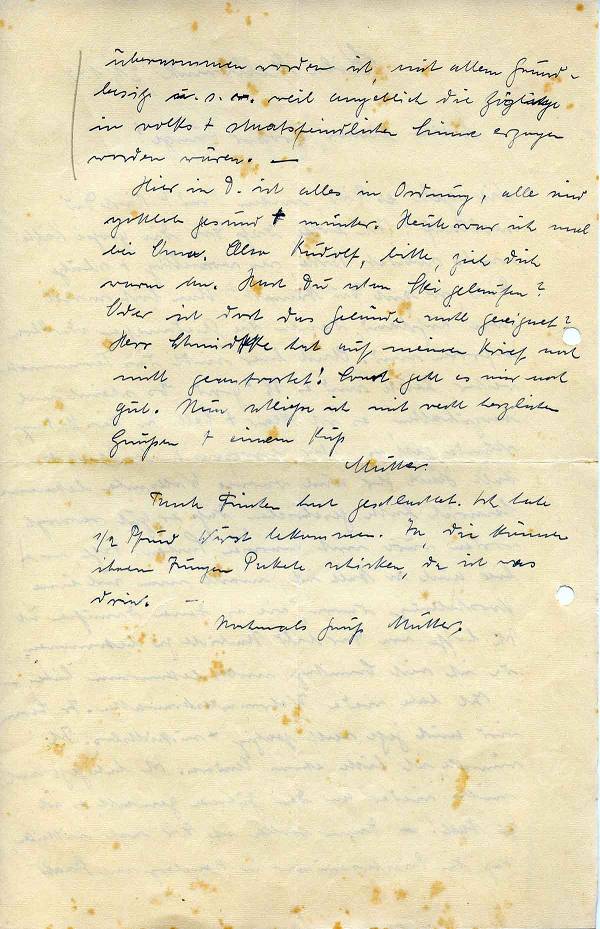 übernommen worden ist, mit allem Grund-
besitz u. s. w. weil angeblich die Zöglinge
in volks + staatsfeindlichem Sinne erzogen
worden wären. —
Hier in D. ist alles in Ordnung, alle sind
gottlob gesund + munter. Heute war ich mal
bei Oma. Also Rudolf, bitte, zieh Dich
warm an. Hast Du schon Ski gelaufen?
Oder ist dort das Gelände nicht geeignet?
Herr hat auf meinen Brief noch
nicht geantwortet! Sonst geht es mir noch
gut. Nun schließe ich mit recht herzlichen
Grüßen + einem Kuß
Mutter.
Tante hat geschlachtet. Ich habe
1/2 Pfund Wurst bekommen. Ja, die können
ihrem Jungen Pakete schicken, da ist was
drin. —
Nochmals Gruß Mutter.